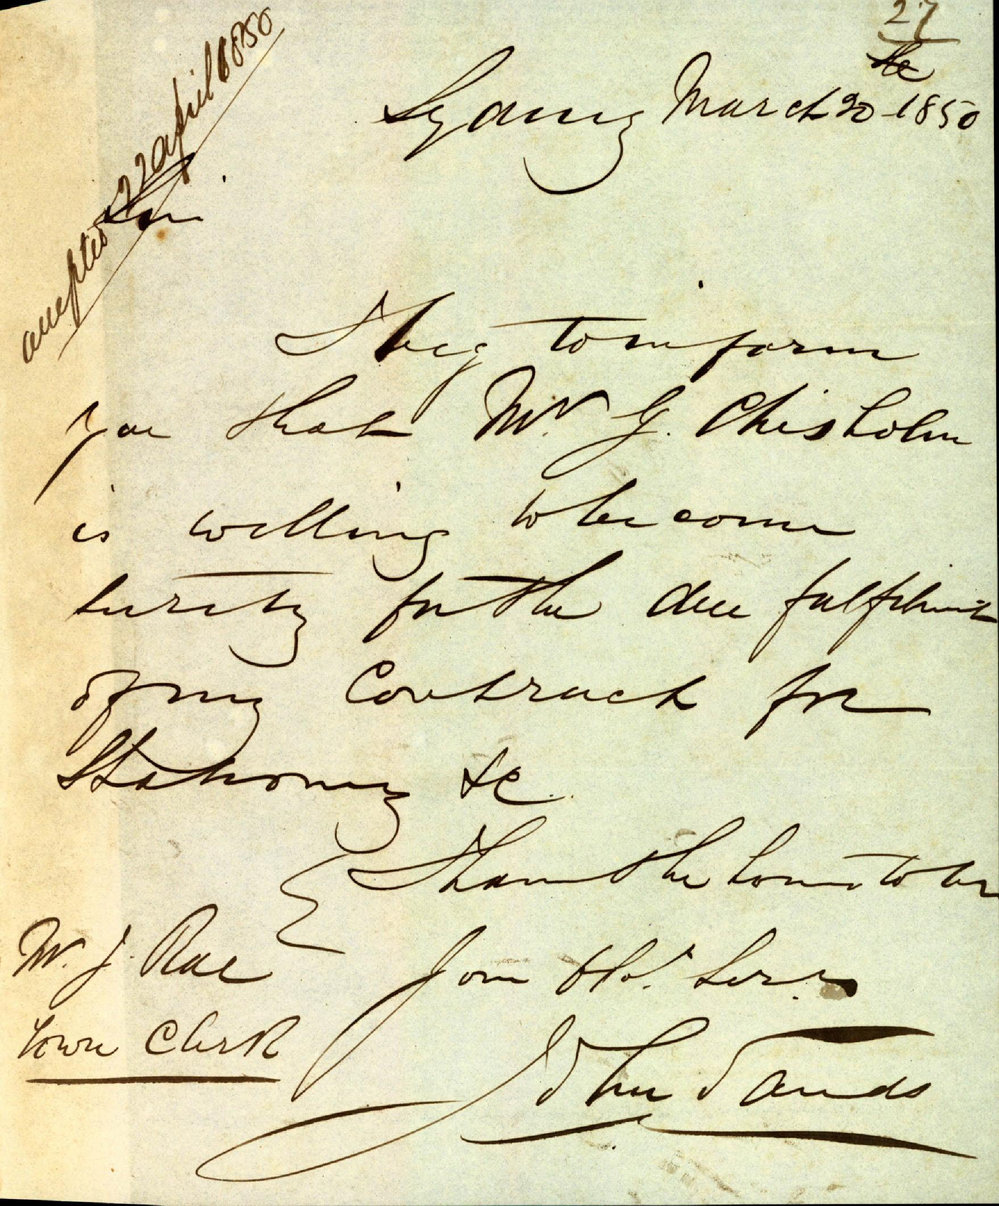 27
Sydney March 20 1850
accepted 22 April 1850
Sir
I beg to inform
you that Mr. G. Chisholm
is willing to become
surety for the due fulfilment
of my Contract for
Stationery &c.
I have the honor to be
Your Obt. Serv.
Mr. J. Rae
Town Clerk
John Sands